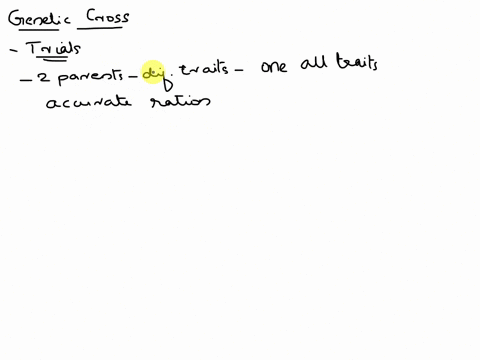 Genetic Cross
- Trials
- 2 parents - dif. traits - one all traits
accurate ratios